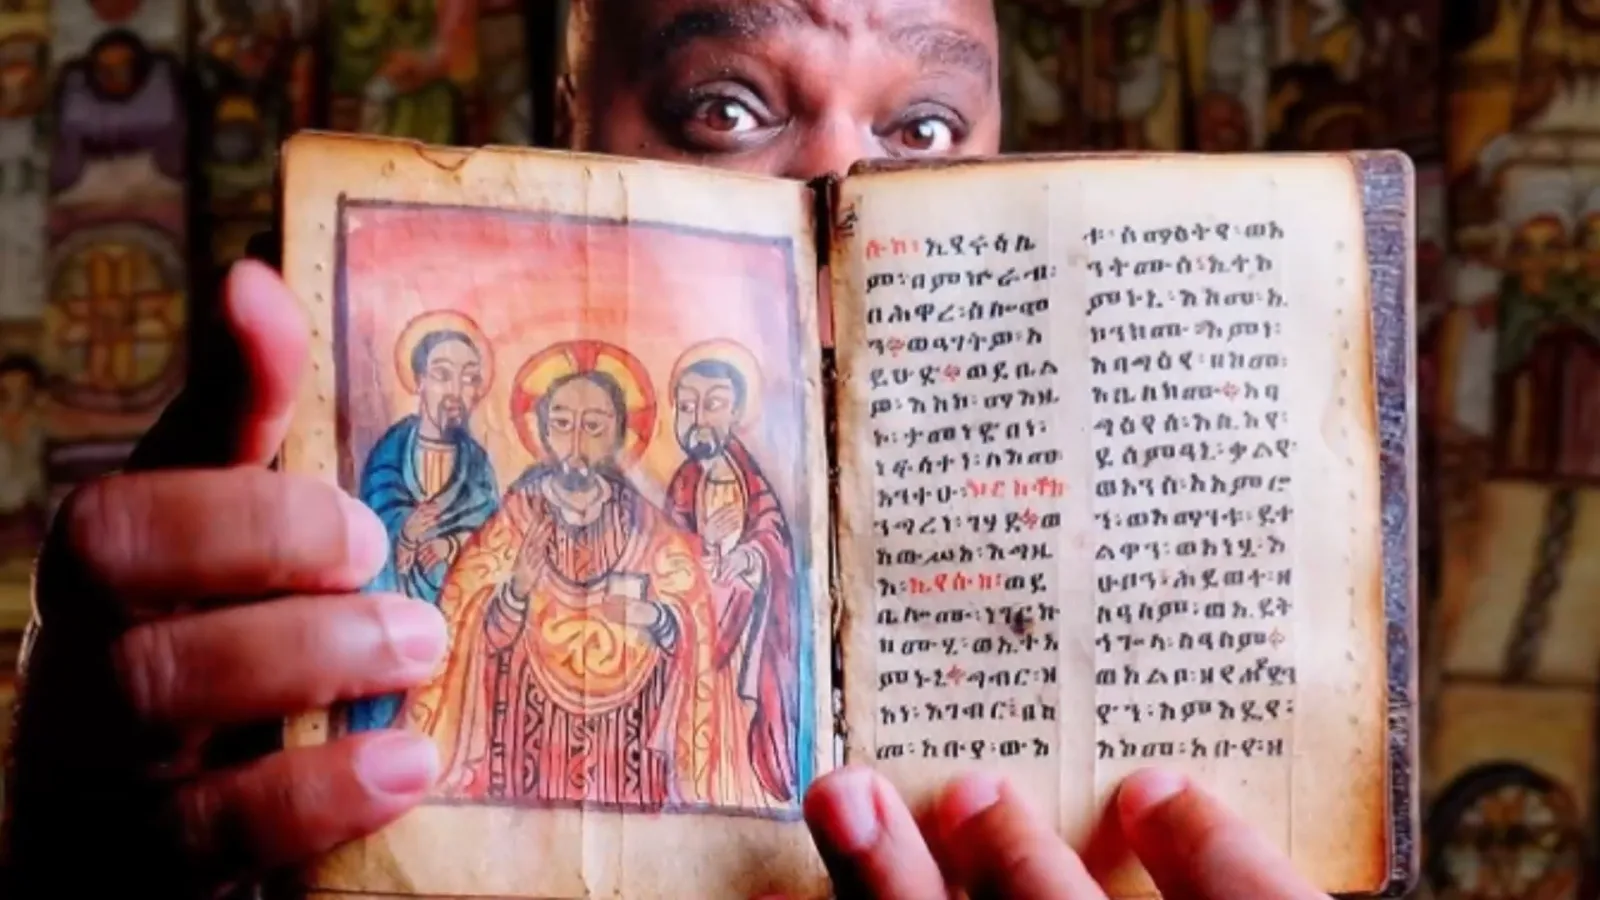 ሱስ፡ ኢየሩሳሌ
ም፡በምኵራብ፡
በሕዋረ፡ሰሎሞ
ን።ወዓገትዎ፡አ
ይሁድ።ወይቤል
ዎ፡እስከ፡ማእዜ
ኑ፡
ነፍሳተነ፡ለእመ
አንተሁ፡ክርስቶስ
ንግረነ፡ገሃደ።ወ
አውሥአ፡እግዚ
እ፡ኢየሱስ፡ወይ
ቤሎሙ፡ነገርኩ
ክሙሂ፡ወኢተአ
ምኑኒ።ግብር፡ዘ
አነ፡እገብር፡በስ
መ፡አቡየ፡ውእ
ቱ፡ስማዕትየ፡ወአ
ንትሙሰ፡ኢተአ
ምኑኒ፡እስመ፡ኢ
ኮንክሙ፡እምነ፡
አባግዕየ፡በከመ፡
እቤለክሙ።አባ
ግዕየሰ፡እሊአየ፡
ይሰምዓኒ፡ቃልየ፡
ወአንሰ፡አአምሮ
ን፡ወእማንቱ፡ይተ
ልዋኒ፡ወአነሂ፡እ
ሁቦን፡ሕይወተ፡ዘ
ለዓለም፡ወኢይት
ኀጐላ፡ለዓለም።
ወአልቦ፡
እምእዴየ፡
እስመ፡አቡየ፡ዘ